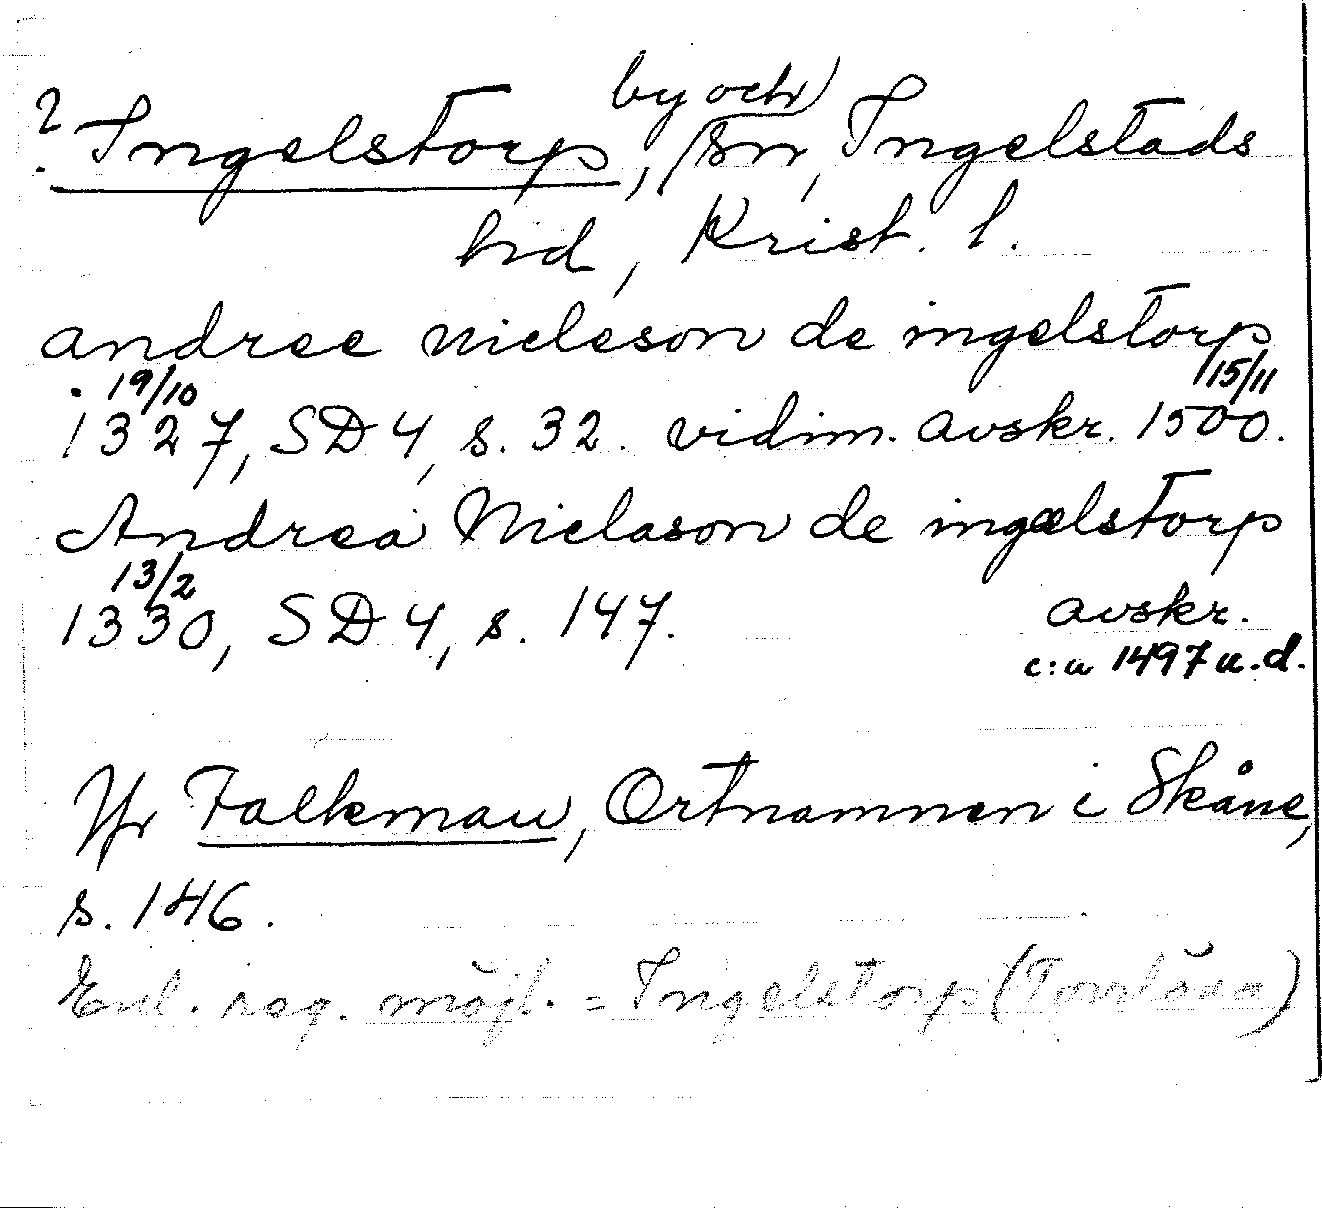 ? Ingelstorp, by och sn, Ingelstads
hd, Krist. l.
andree nicleson de ingelstorp
19/10 1327, SD 4, s. 32. vidim. avskr. 15/11 1500.
Andrea Niclason de ingælstorp
13/2 1330, SD 4, s. 147. avskr.
c:a 1497 u.d.
Jfr Falkman, Ortnamnen i Skåne,
s. 146.
Enl. reg. möjl. = Ingelstorp (Torrlösa)